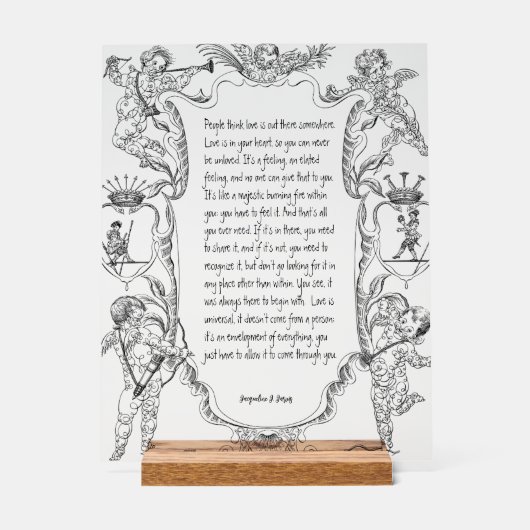 People think love is out there somewhere.
Love is in your heart, so you can never
be unloved. It's a feeling, an elated
feeling, and no one can give that to you.
It's like a majestic burning fire within
you; you have to feel it. And that's all
you ever need. If it's in there, you need
to share it, and if it's not, you need to
recognize it, but don't go looking for it in
any place other than within. You see, it
was always there to begin with. Love is
universal, it doesn't come from a person;
it's an envelopment of everything, you
just have to allow it to come through you.
Jacqueline J. Jarvis